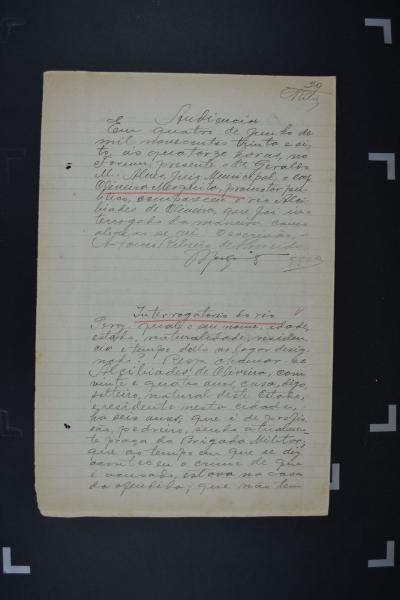 20
Audiencia
Em quatro de Junho de
mil novecentos trinta e oi-
to, ás quatorze horas, no
Forum, presente o Dr. Geraldo
M. Alves, Juiz Municipal, o cap.
promotor pu-
blico, compareceu o réo Alci-
biades de Oliveira, que foi in-
terrogado da maneira como
abaixo se vê. O escrivão,
Interrogatorio do réo
Perg. qual o seu nome, idade,
estado, naturalidade, residen-
cia e tempo della no logar desig-
nado? Resp. chamar-se
Alcibiades de Oliveira, com
vinte e quatro anos, casa, digo,
solteiro, natural deste Estado,
e residente nesta cidade,
ha seis anos, que é de profis-
são, pedreiro, sendo atualmen-
te praça da Brigada Militar;
que ao tempo em que se diz
aconteceu o crime de que
é acusado, estava na casa
do ofendido; que não tem